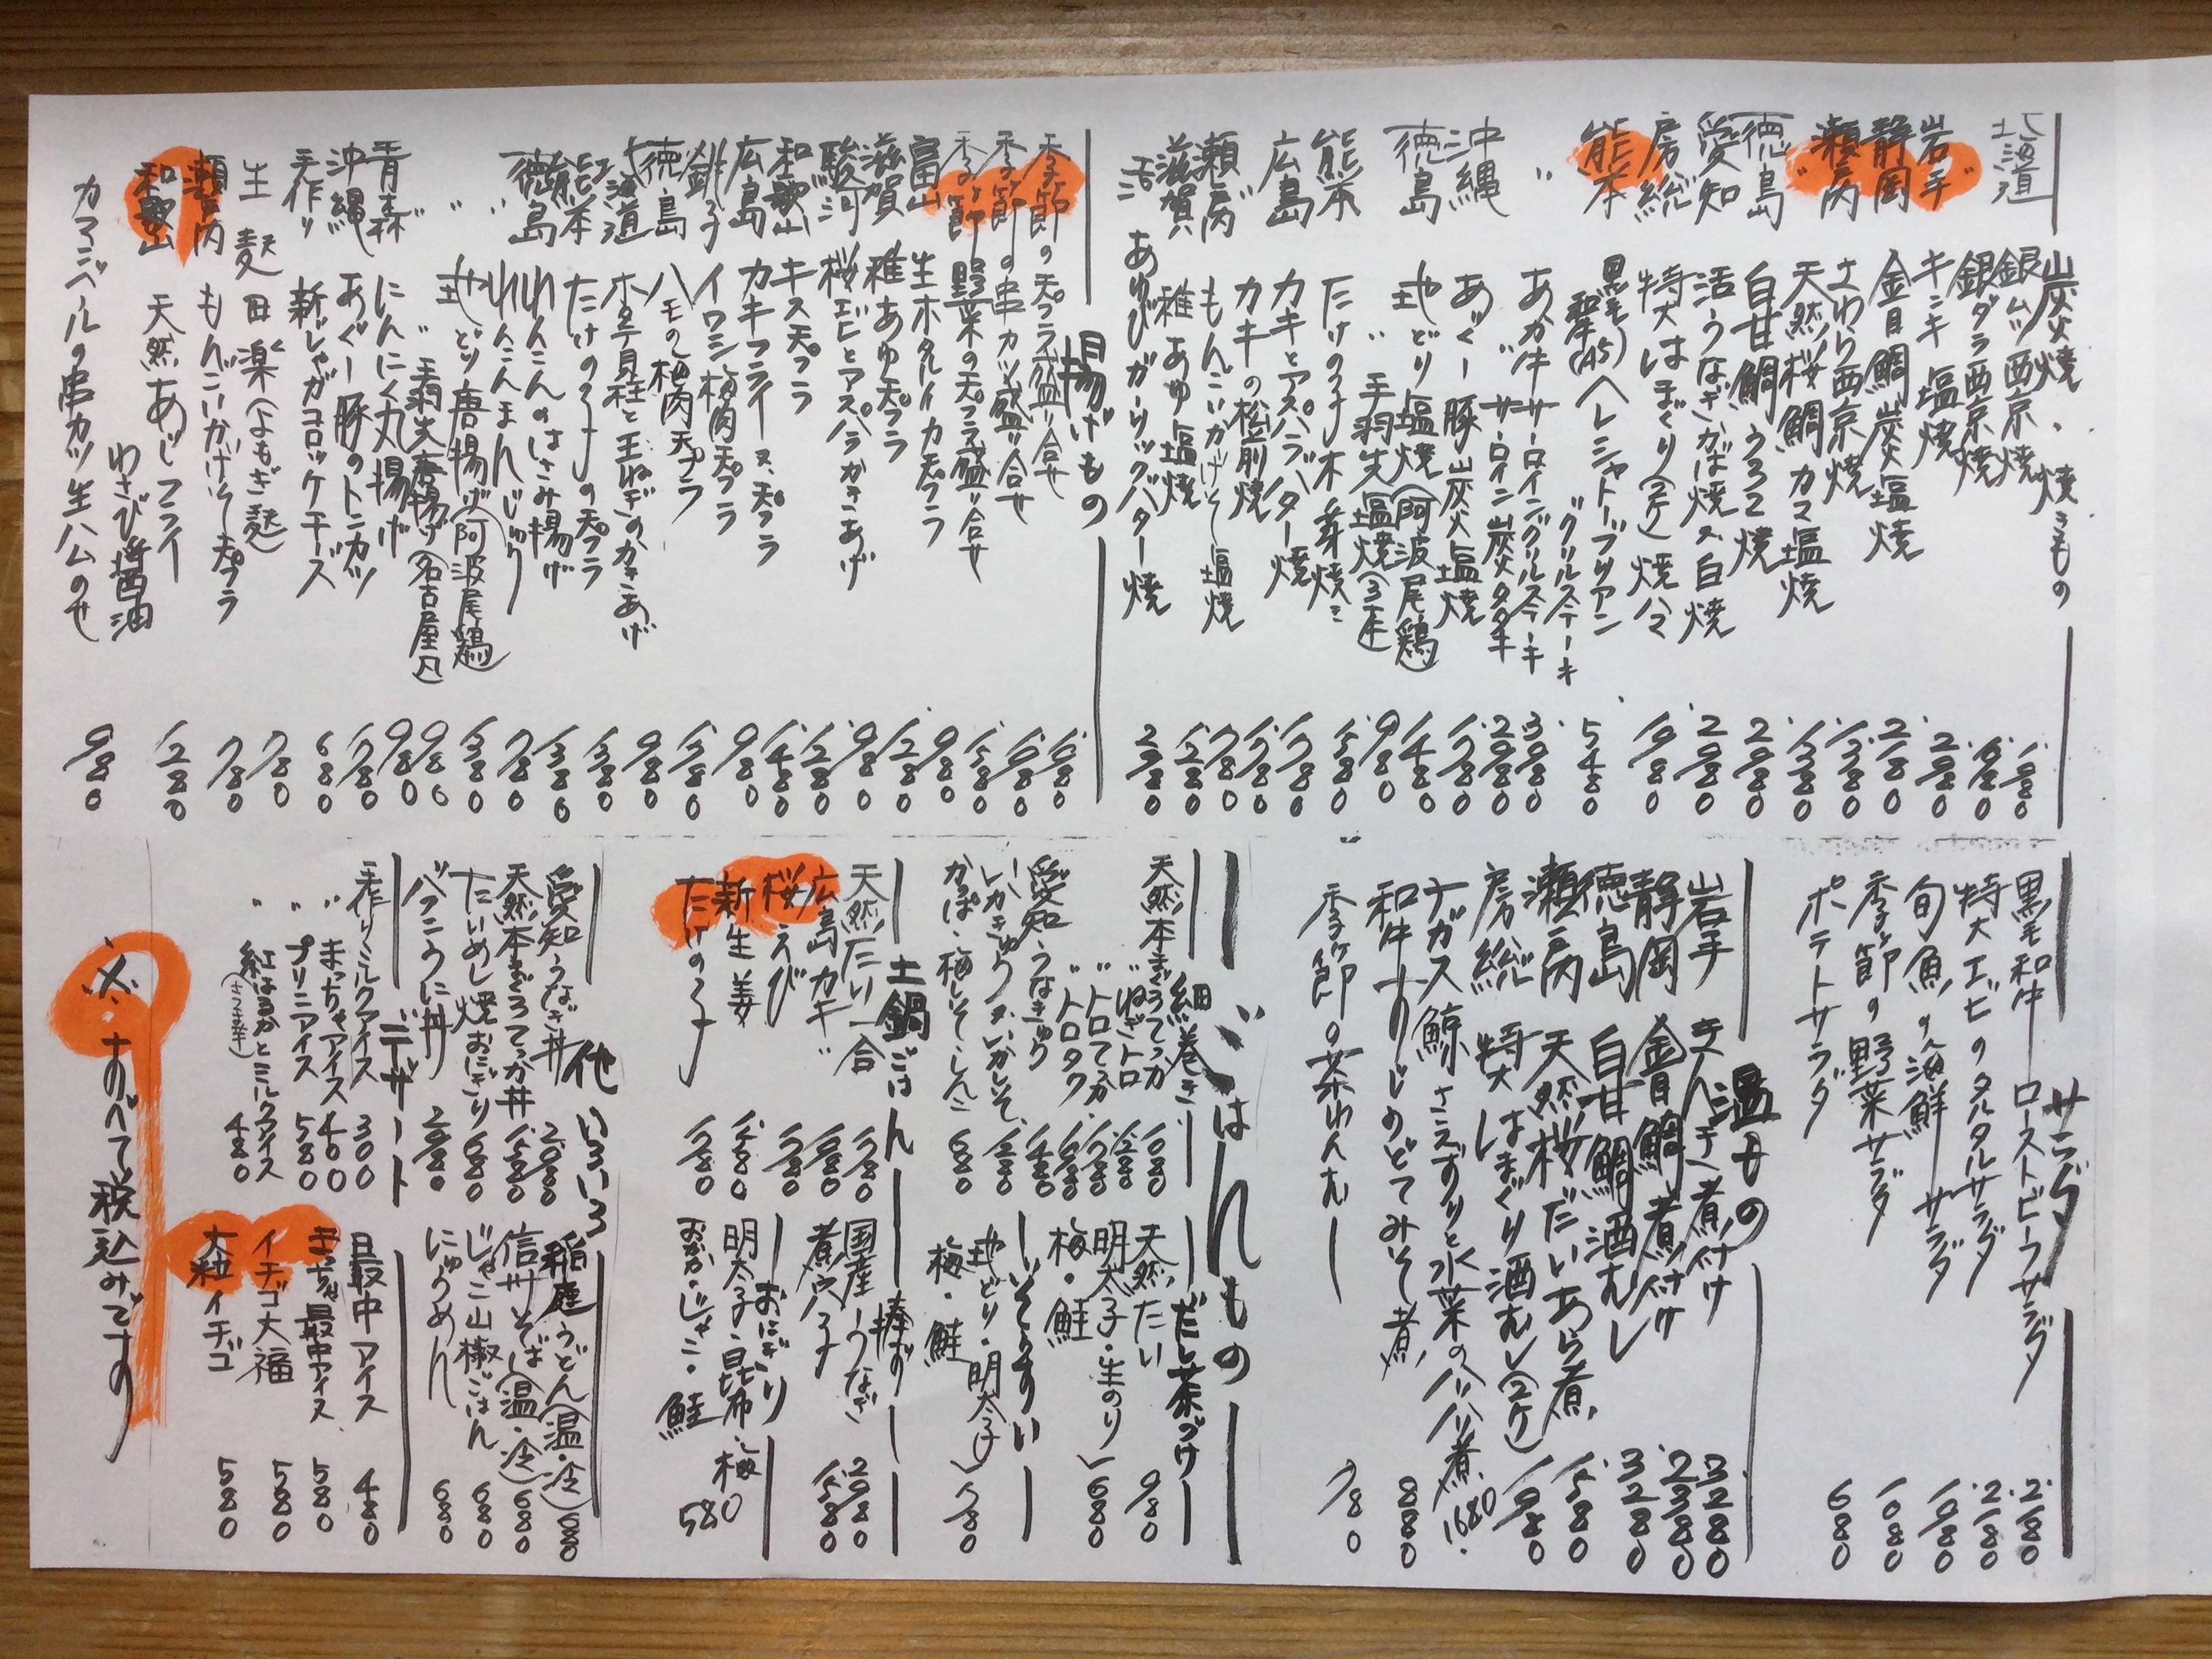 炭火焼・焼きもの
北海道 銀ムツ西京焼 1.980
銀ダラ西京焼 1.680
岩手 キンキ塩焼 2.980
静岡 金目鯛炭塩焼 2.180
瀬戸内 さわら西京焼 1.380
〃 天然桜鯛カマ塩焼 1.380
徳島 白甘鯛うろこ焼 2.980
愛知 活うなぎかば焼 又 白焼 2.980
房総 特大はまぐり(2ケ)焼 1.980
熊本 黒毛和牛(A5)ヘレシャトーブリアン
〃 グリルステーキ 5.480
〃 あか牛サーロイングリルステーキ 3.980
〃 サーロイン炭火タタキ 2.980
沖縄 あぐー豚炭火塩焼 1.780
徳島 地どり塩焼(阿波尾鶏) 1.480
〃 手羽先塩焼(3本) 980
熊本 たけの子木の芽焼き 1.580
広島 カキとアスパラバター焼 1.780
カキの松前焼 1.780
瀬戸内 もんごいかげそ塩焼 780
滋賀 稚あゆ塩焼 1.280
活 あわびガーリックバター焼 2.980
揚げもの
季節の天プラ盛り合せ 1.980
季節の串カツ盛り合せ 1.980
季節野菜の天プラ盛り合せ 1.580
富山 生ホタルイカ天プラ 980
滋賀 稚あゆ天プラ 1.280
駿河 桜エビとアスパラかきあげ 980
和歌山 キス天プラ 1.280
広島 カキフライ 又 天プラ 1.480
銚子 イワシ梅肉天プラ 980
徳島 ハモの梅肉天プラ 1.380
北海道 ホタテ貝柱と玉ねぎのかきあげ 980
熊本 たけの子の天プラ 1.380
徳島 れんこんのはさみ揚げ 1.380
〃 れんこんまんじゅう 780
〃 地どり唐揚げ(阿波尾鶏) 1.380
〃 手羽先唐揚げ(名古屋風) 980
青森 にんにく丸揚げ 980
沖縄 あぐー豚のトンカツ 1.780
手作り 新じゃがコロッケチーズ 680
生麩田楽(よもぎ麩) 780
瀬戸内 もんごいかげそ天プラ 780
和歌山 天然あじフライ
わさび醤油 1.280
カマンベールの串カツ生ハムのせ 980
サラダ
黒毛和牛ローストビーフサラダ 2.180
特大エビのタルタルサラダ 2.180
旬魚の海鮮サラダ 1.980
季節の野菜サラダ 1.080
ポテトサラダ 680
温もの
岩手 きんき煮付け 3.280
静岡 金目鯛煮付け 2.380
徳島 白甘鯛酒むし 3.280
瀬戸内 天然桜だいあら煮 1.580
房総 特大はまぐり酒むし(2ケ) 1.980
ナガス鯨さえずりと水菜のハリハリ煮 1.680
和牛すじのどてみそ煮 880
季節の茶わんむし 780
ごはんもの
細巻き
天然本まぐろてっか 1.080
〃 ねぎトロ 1.280
〃 トロてっか 1.780
〃 トロタク 1.680
愛知 うなきゅう 1.480
いかきゅう 又 いかしそ 1.280
かっぱ・梅しそ・しんこ 680
だし茶づけ
天然たい 980
明太子・生のり
梅・鮭 680
いそうすい
地どり・明太子
梅・鮭 780
土鍋ごはん
天然たい一合 1.780
広島カキ 1.980
桜えび 1.780
新生姜 1.580
たけの子 1.780
棒ずし
国産うなぎ 2.980
煮穴子 1.580
おにぎり
明太子・昆布・梅
おかか・じゃこ・鮭 580
他いろいろ
愛知うなぎ丼 2.080
天然本まぐろてっか丼 1.580
たいめし焼おにぎり 680
バフンうに丼 2.980
稲庭うどん(温・冷) 680
信州そば(温・冷) 680
じゃこ山椒ごはん 680
にゅうめん 680
デザート
手作りミルクアイス 300
〃 まっちゃアイス 400
〃 プリンアイス 580
〃 紅はるかとミルクアイス 480
(さつま芋)
最中アイス 480
まっちゃ最中アイス 580
イチゴ大福 580
大粒イチゴ 580
※すべて税込みです